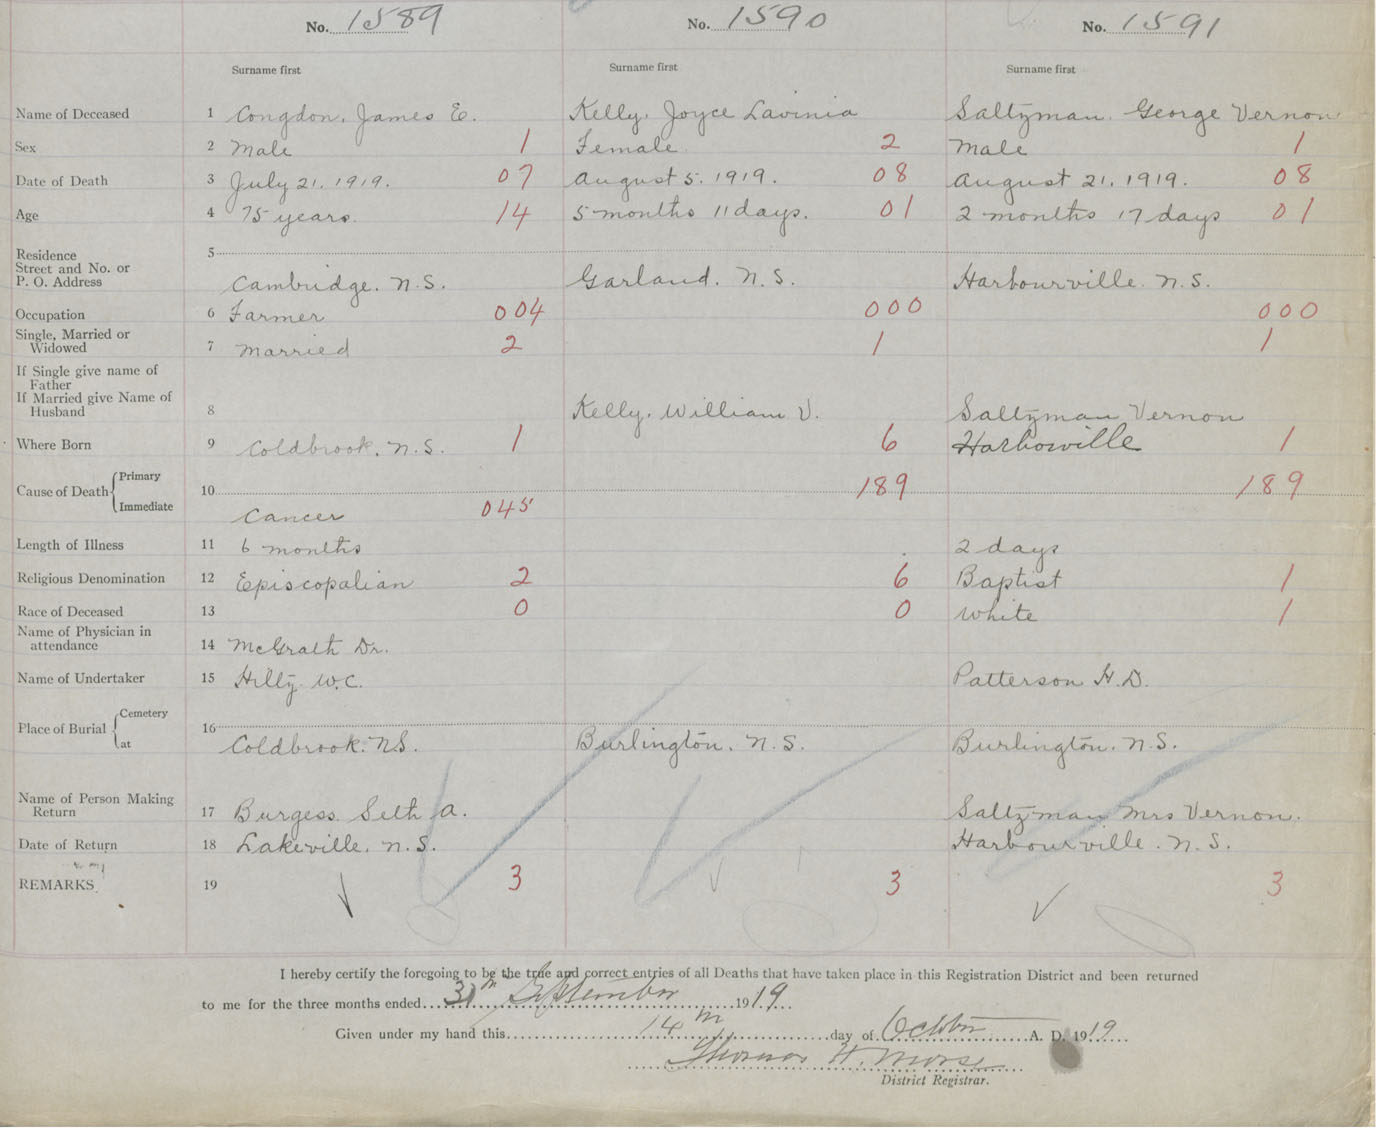 No. 1589 No. 1590 No. 1591
Surname first Surname first Surname first
Name of Deceased 1 Congdon, James E. Kelly, Joyce Lavinia Saltzman, George Vernon
Sex 2 Male 1 Female 2 Male 1
Date of Death 3 July 21, 1919. 07 August 5. 1919. 08 August 21, 1919. 08
Age 4 75 years. 14 5 months 11 days. 01 2 months 17 days 01
Residence 5
Street and No. or
P. O. Address Cambridge, N.S. Garland, N.S. Harbourville, N.S.
Occupation 6 Farmer 004 000 000
Single, Married or
Widowed 7 Married 2 1 1
If Single give name of
Father
If Married give Name of
Husband 8 Kelly, William V. Saltzman Vernon
Where Born 9 Coldbrook, N.S. 1 6 Harborville 1
Cause of Death { Primary
10 189 189
Immediate Cancer 045
Length of Illness 11 6 months 2 days
Religious Denomination 12 Episcopalian 2 6 Baptist 1
Race of Deceased 13 0 0 White 1
Name of Physician in
attendance 14 McGrath Dr.
Name of Undertaker 15 W.C. Patterson H.D.
Place of Burial { Cemetery
16
at Coldbrook. N.S. Burlington, N.S. Burlington, N.S.
Name of Person Making
Return 17 Burgess Seth A. Saltzman Mrs Vernon.
Date of Return 18 Lakeville, N.S. Harbourville, N.S.
REMARKS 19 3 3 3
I hereby certify the foregoing to be the true and correct entries of all Deaths that have taken place in this Registration District and been returned
to me for the three months ended September 1919
Given under my hand this 14th day of October A. D. 1919
Thomas H. Morse
District Registrar.